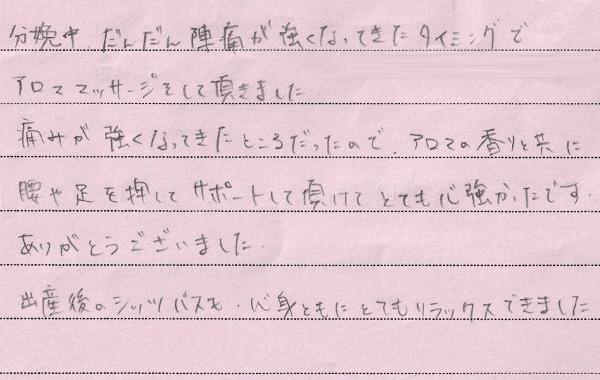 分娩中、だんだん陣痛が強くなってきたタイミングで
アロママッサージをして頂きました
痛みが強くなってきたところだったので、アロマの香りと共に
腰や足を押してサポートして頂けてとても心強かったです.
ありがとうございました.
出産後のシッツバスも、心身ともにとてもリラックスできました